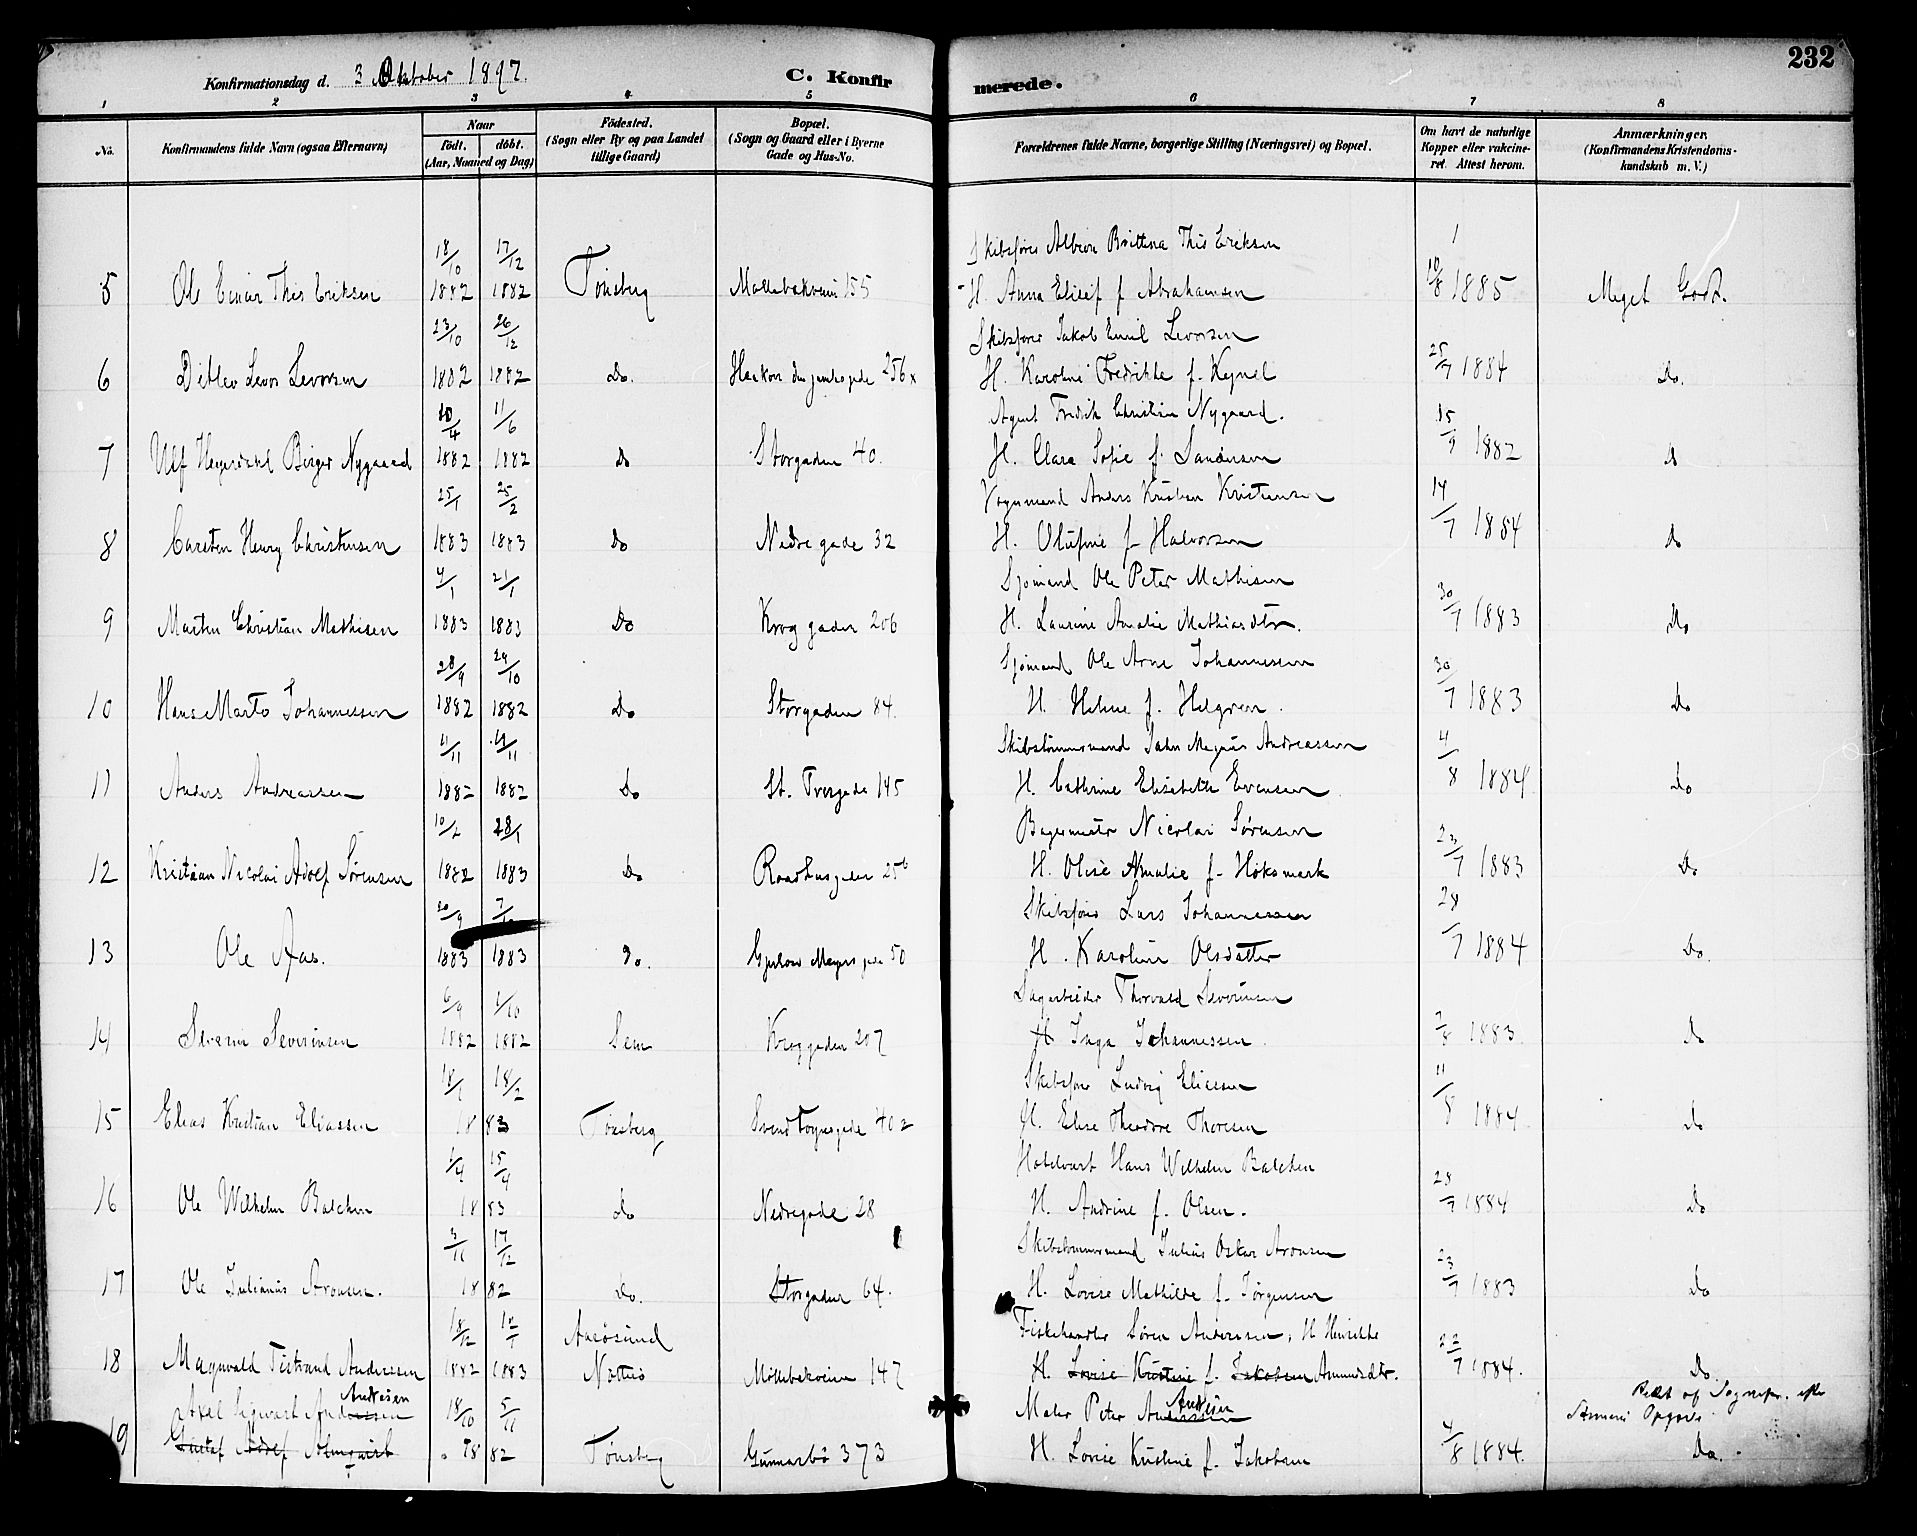 232
Konfirmationsdag d. 3 Oktober 1897.
C. Konfirmerede.
1 2 3 4 5 6 7 8
No.
Konfirmandens fulde Navn (ogsaa Efternavn)
Naar
født. døbt.
(Aar, Maaned og Dag)
Fødested.
(Sogn eller By og paa Landet
tillige Gaard)
Bopæl.
(Sogn og Gaard eller i Byerne
Gade og Hus-No.
Forældrenes fulde Navne, borgerlige Stilling (Næringsvei) og Bopæl.
Om havt de naturlige
Kopper eller vakcine-
ret. Attest herom.
Anmærkninger.
(Konfirmandens Kristendoms-
kundskab m. V.)
18/10 17/12 Skibsfører Albion Brittina This Eriksen
5 Ole Einar This Eriksen 1882 1882 Tønsberg Møllebakveien 155 H. Anna Elisef f Abrahamsen 10/8 1885 Meget Godt.
23/10 26/12 Skibsfører Jakob Emil Levorsen
6 Ditlev Levor Levorsen 1882 1882 Do. Haakon den gamlesgade 256 x H. Karoline Fredrikke f. 25/7 1884 Do.
10/4 11/6 Agent Fredrik Christian Nygaard.
7 Ulf Heyerdahl Birger Nygaard 1882 1882 Do Storgaden 40. H. Clara Sofie f. Sandersen 15/9 1882 Do
25/1 25/2 Vognmand Anders Kristian Kristiansen
8 Carsten Henry Christensen 1883 1883 Do Nedregade 32 H. Olufine f. Halvorsen 14/7 1884 Do
4/1 21/1 Sjømand Ole Peter Mathisen
9 Martin Christian Mathisen 1883 1883 Do Kroggaden 206 H. Laurine Amalie Mathiasdtr. 30/7 1883 Do
28/9 29/10 Sjømand Ole Arne Johannessen
10 Hans Marto Johannessen 1882 1882 Do Storgaden 84. H. Helene f. Helgren. 30/7 1883 Do
4/11 Skibstømmermand John Magnus Andreassen
11 Anders Andreassen 1882 1882 Do St. Tversgade 145 H. Cathrine Elisabeth Evensen 4/8 1884 Do
10/2 28/1 Bagermester Nicolai Sørensen
12 Kristian Nicolai Adolf Sørensen 1882 1883 Do Raadhusgaden 256 H. Olise Amalie f. Høksmark 23/7 1883 Do
20/9 Skibsfører Lars Johannessen
13 Ole Aas. 1883 1883 Do. Gjerløw Meyers gade 50 H. Karoline Olsdatter 28/7 1884 Do.
6/9 1/10 Sagarbeider Thorvald Severinsen
14 Severin Severinsen 1882 1882 Sem Kroggaden 207 H Inga Johannessen. 7/8 1883 Do
18/1 18/2 Skibsfører Ludvig Eliassen
15 Elias Kristian Eliassen 1883 Tønsberg Svend Foynsgade 402 H. Elise Theodore Thoresen 11/8 1884 Do
1/4 15/4 Hotelvert Hans Wilhelm Balchen
16 Ole Wilhelm Balchen 1883 do Nedregade 28 H. Andrine f. Olsen. 28/7 1884 Do
3/11 17/12 Skibstømmermand Julius Oskar Aronsen
17 Ole Julianus Aronsen. 1882 Do. Storgaden 64. H. Lovise Mathilde f. Jørgensen 23/7 1883 Do
18/12 Aarøsund Fiskehandler Søren Andersen, H Henrikke
18 Magnvald Tistrand Anderssen 1882 1883 Nøtterø Møllebakveien 147 H. Lovise Kristine f. Jakobsen Amundsdtr. 22/7 1884. Do
Axel Sigvart Anderssen Andresen 18/10 5/11 Maler Peter Anderssen Andresen Rettet af Sognepr. efter
Opgave
19 Gustaf Adolf Almqvist 1882 Tønsberg Gunnarbø 373 H. Lovise Kristine f. Jakobsen 4/8 1884. Do.